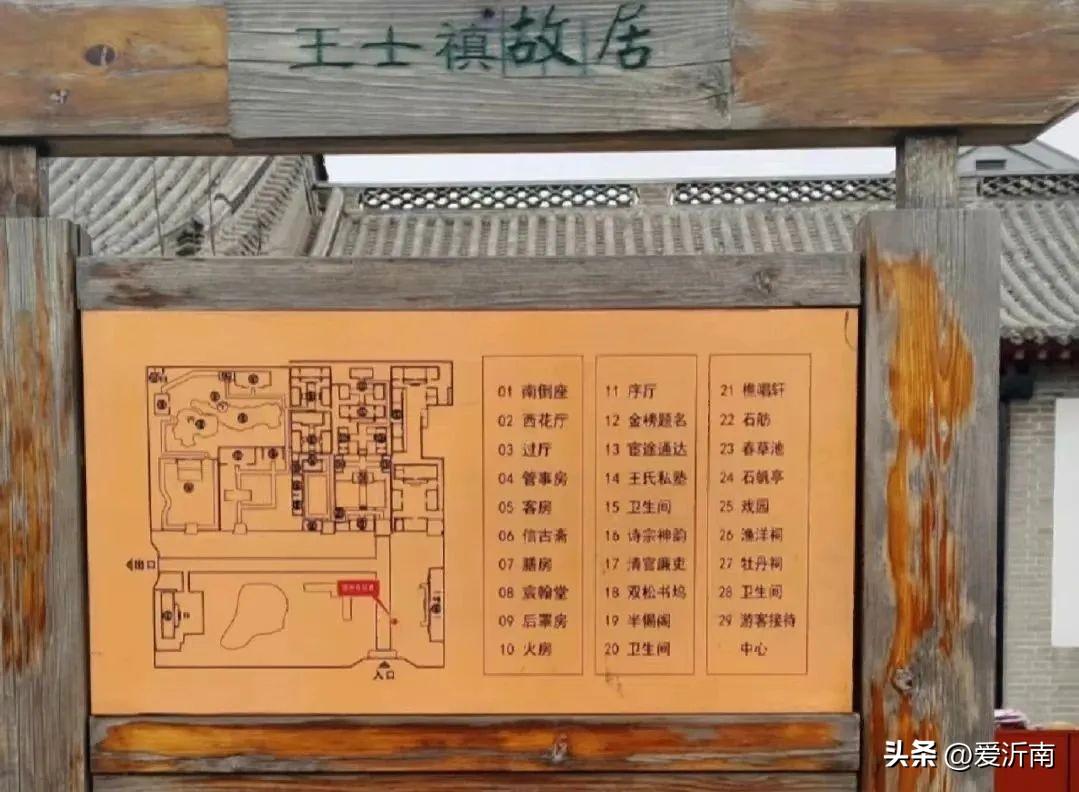 王士禛故居
01 南倒座
02 西花厅
03 过厅
04 管事房
05 客房
06 信古斋
07 膳房
08 宸翰堂
09 后罩房
10 火房
11 序厅
12 金榜题名
13 宦途通达
14 王氏私塾
15 卫生间
16 诗宗神韵
17 清官廉吏
18 双松书坞
19 半偈阁
20 卫生间
21 樵唱轩
22 石筋
23 春草池
24 石帆亭
25 戏园
26 渔洋祠
27 牡丹祠
28 卫生间
29 游客接待
中心
出口
入口
头条 @爱沂南